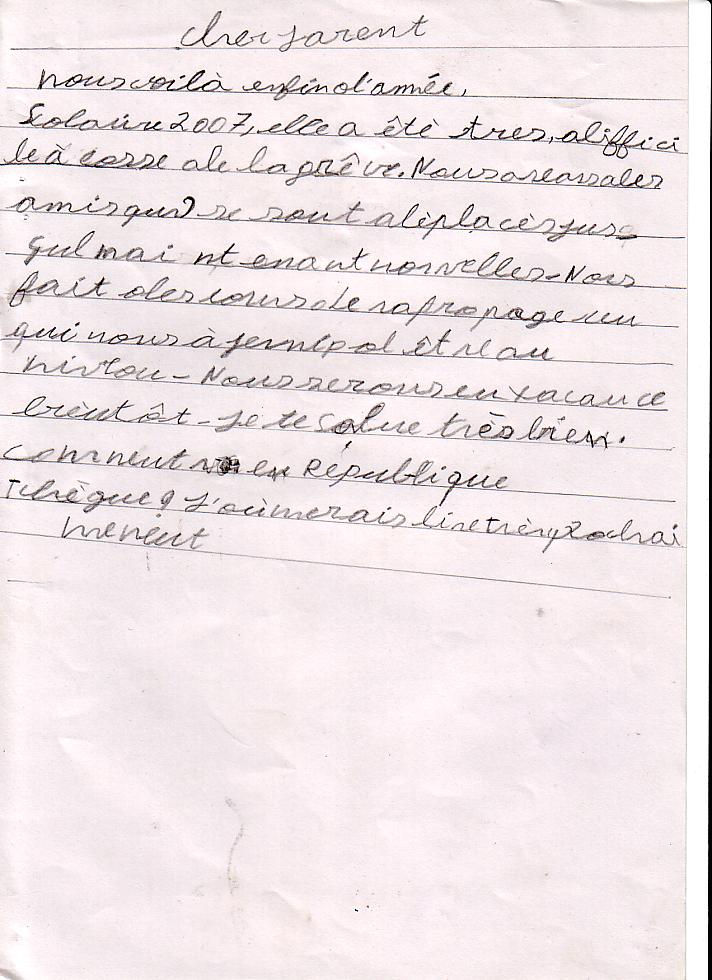 cher parent
nous voilà enfin d'année,
Scolaire 2007, elle a été tres, diffici
le à cosse de la grêve. Nous avons des
amis qui se sont déplacés jus
qul mai nt enant nouvelles - Nous
fait des cours de rapropage
qui nous à permp d être au
niveau - Nous serons en vacance
bientôt - je te salue très bien.
comment en République
Tchèque ? J'aimerais lire très prochai
nement